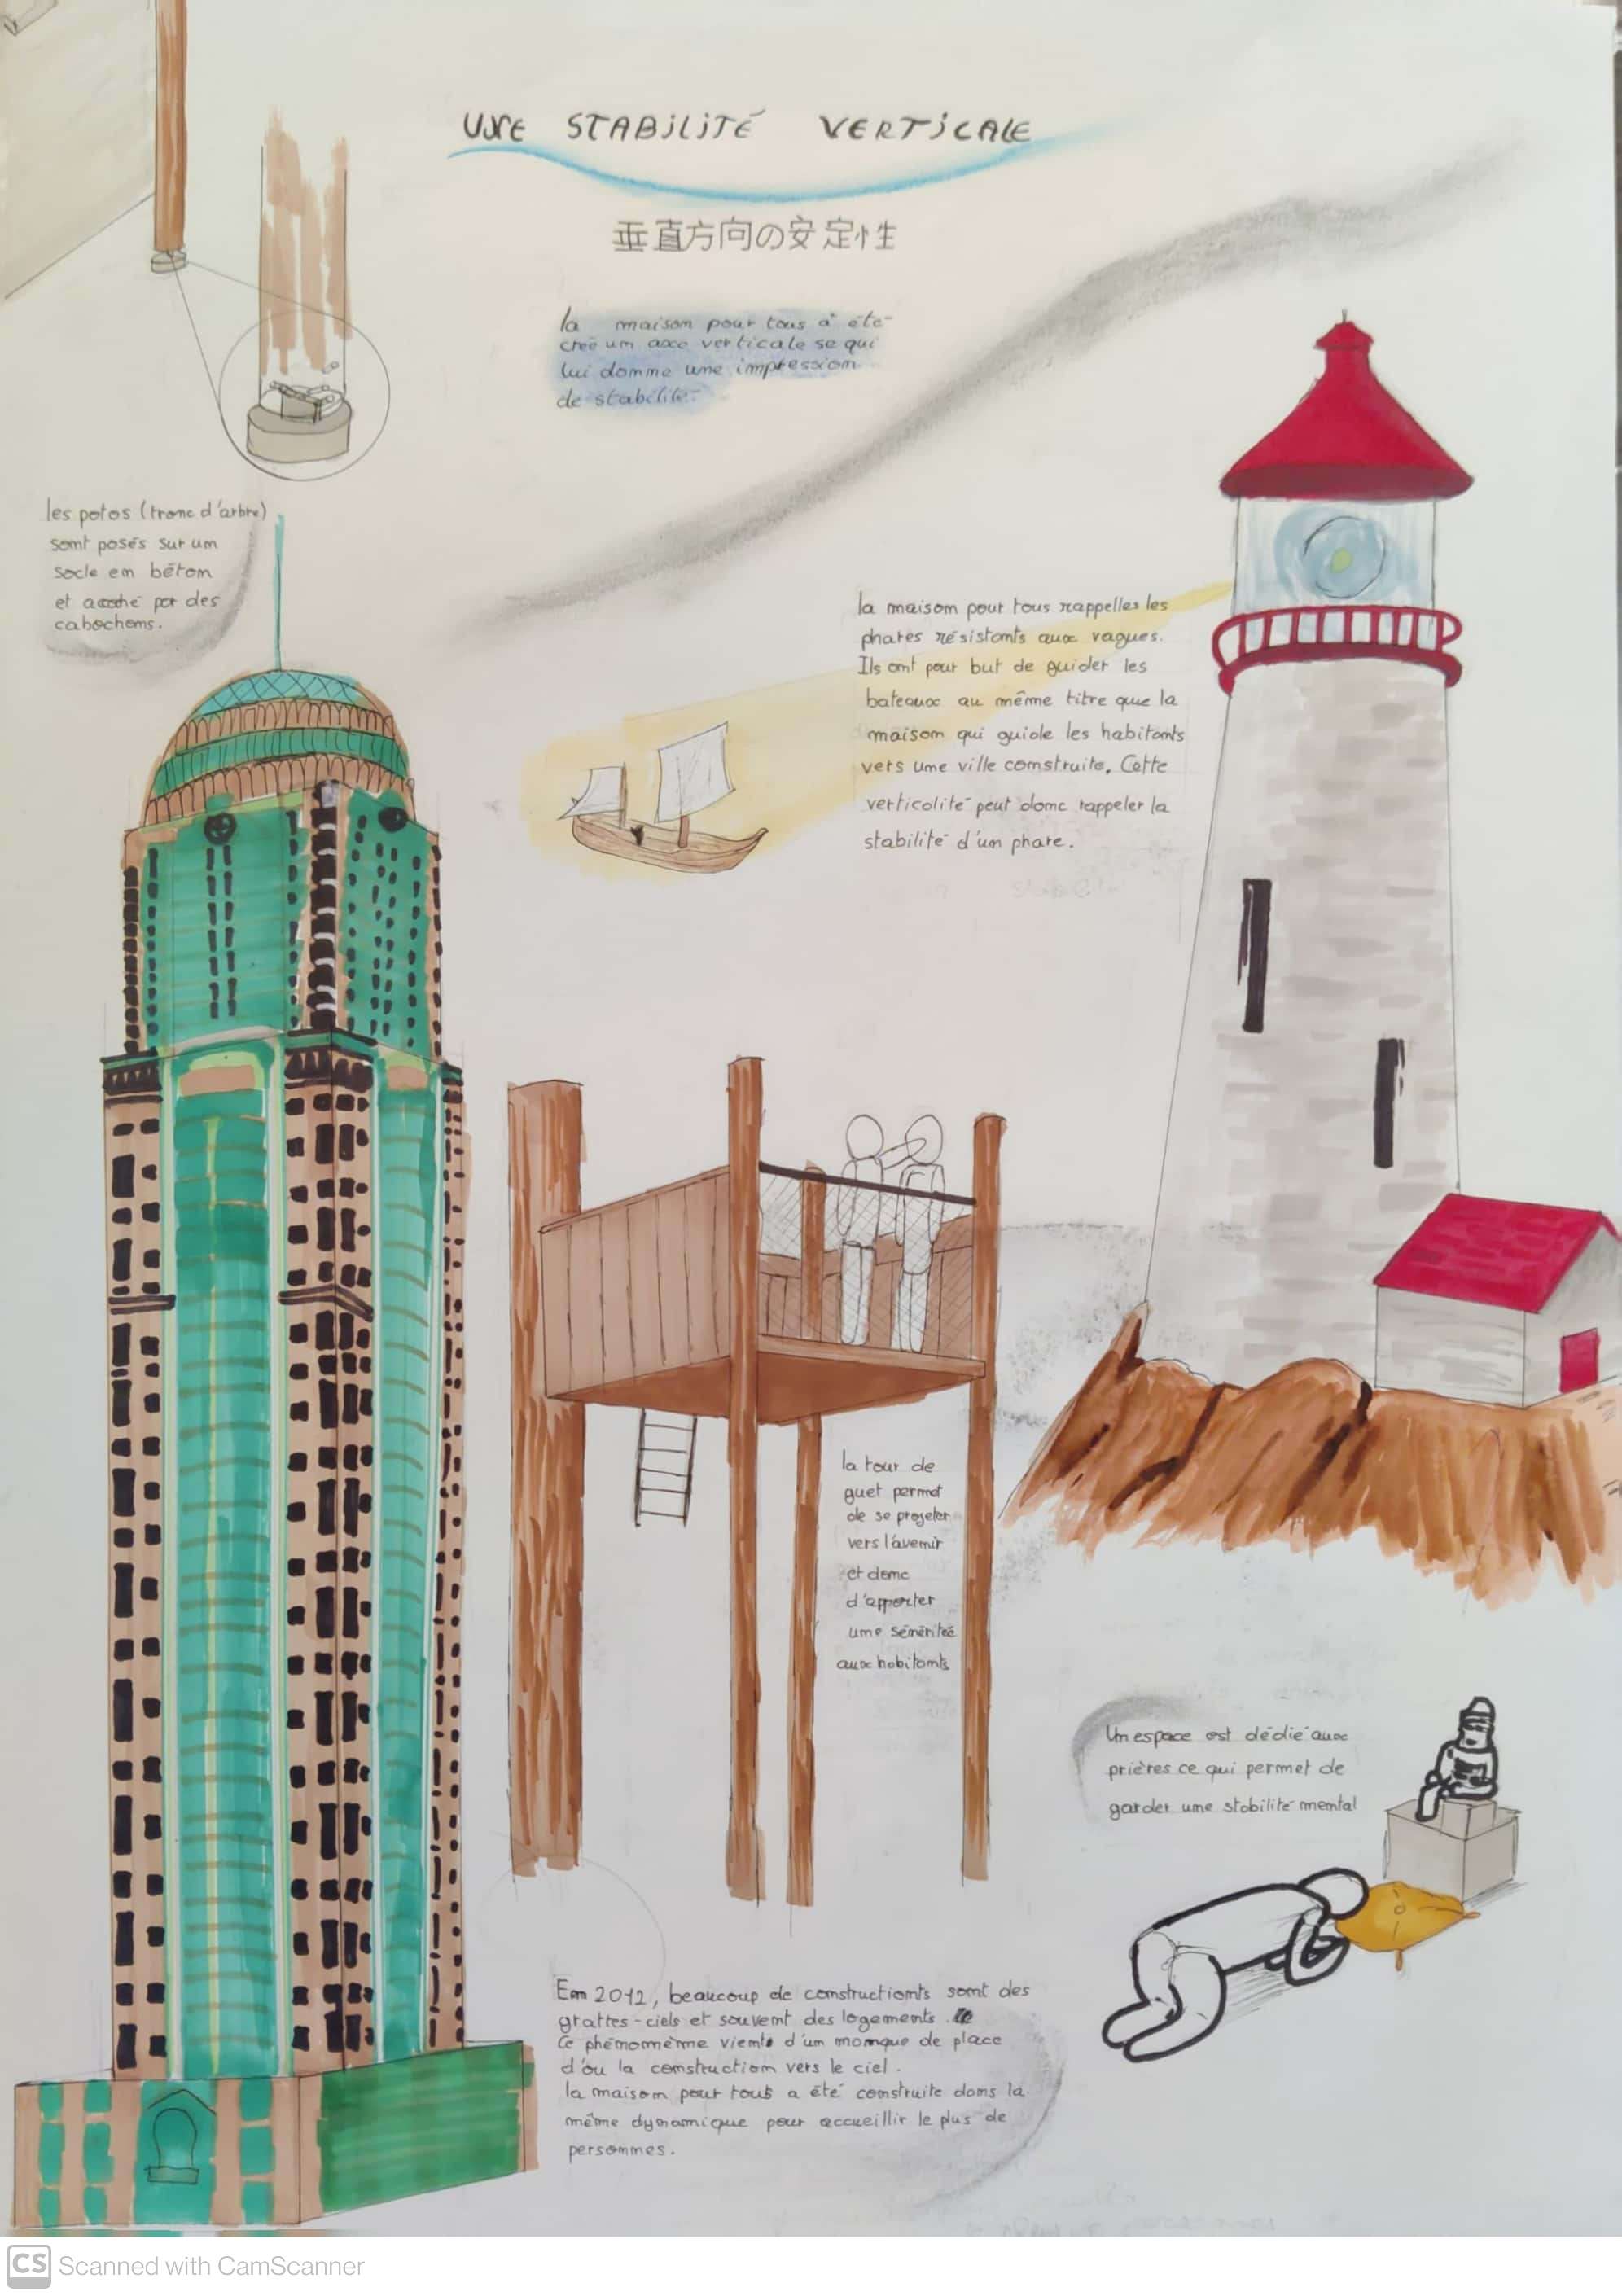 UNE STABILITÉ VERTICALE
垂直方向の安定性
la maison pour tous à été
creé un axe verticale se qui
lui donne une impression
de stabilité.
les potos (tronc d'arbre)
sont posés sur un
socle en béton
et accché par des
cabochons.
la maison pour tous rappelles les
phares résistants aux vagues.
Ils ont pour but de guider les
bateaux au même titre que la
maison qui guide les habitants
vers une ville construite. Cette
verticalité peut donc rappeler la
stabilité d'un phare.
la tour de
guet permet
de se projeter
vers l'avenir
et donc
d'apporter
une sénéritée
aux habitants
Un espace est dédié aux
prières ce qui permet de
garder une stabilité mental
En 2012, beaucoup de constructionts sont des
grattes-ciels et souvent des logements.
Ce phénomène vients d'un manque de place
d'ou la construction vers le ciel.
la maison pour tous a été construite dans la
même dynamique pour accueillir le plus de
personnes.
CS Scanned with CamScanner